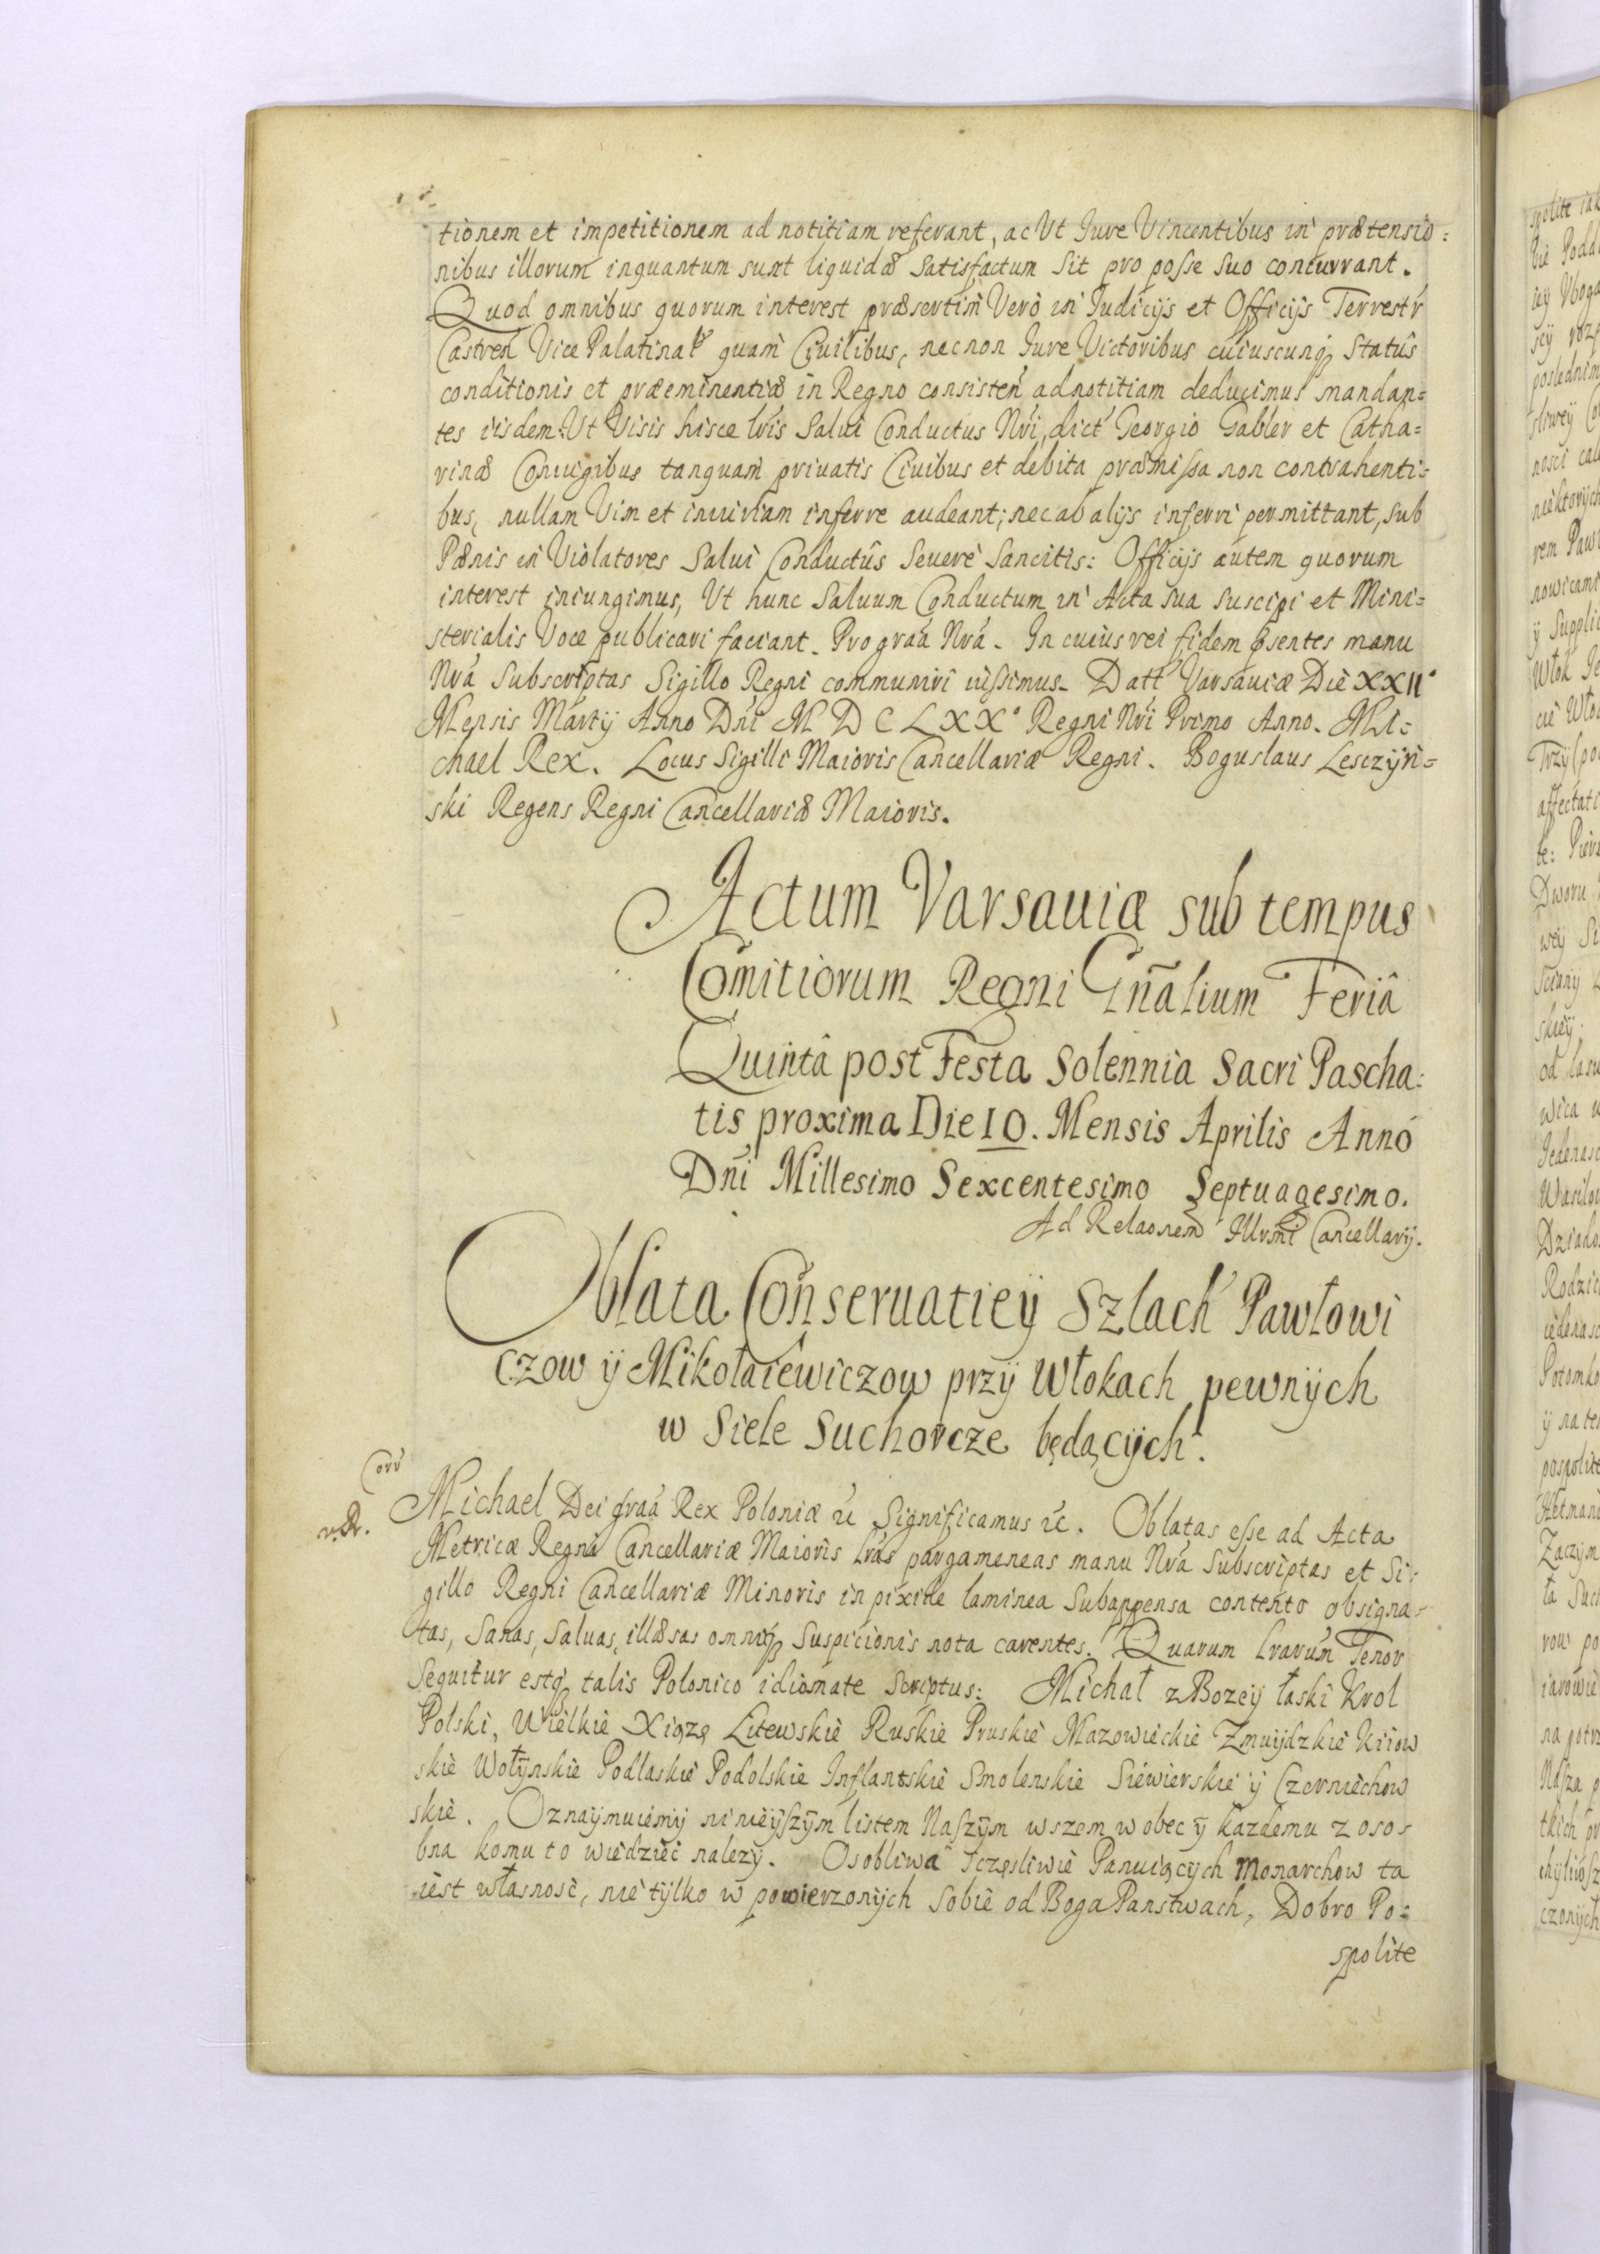 tionem et impetitionem ad notitiam referant, ac Ut Jure Vincentibus in prætensio:
nibus illorum inquantum sunt liquidæ satisfactum sit pro posse suo concurrant.
Quod omnibus quorum interest præsertim Verò in Judicijs et Officijs Terrestr
Castren Vice Palatinal quam Civilibus, necnon Jure Victoribus cuiuscunq Statûs
conditionis et præeminentiæ in Regno consisten ad notitiam deducimus mandan=
tes iisdem Ut Visis hisce lris Salui Conductus Nri, dict Georgio Gabler et Catha=
rinæ Coniugibus tanquam priuatis Ciuibus et debita præmissa non contrahenti=
bus, nullam Vim et iniuriam inferre audeant; nec ab alijs inferri permittant, sub
Pænis in Violatores Salui Conductûs Seuerè Sancitis: Officijs autem quorum
interest iniungimus, Ut hunc Saluum Conductum in Acta sua suscipi et Mini=
sterialis Voce publicari faciant. Pro graa Nra. In cuius rei fidem psentes manu
Nra Subscriptas Sigillo Regni communiri iussimus. Datt Varsauiæ Die XXII
Mensis Martij Anno Dni M D C L X X° Regni Nri Primo Anno. Mi=
chael Rex. Locus Sigilli Maioris Cancellariæ Regni. Boguslaus Lesczyn=
ski Regens Regni Cancellariæ Maioris.
Actum Varsauiæ sub tempus
Comitiorum Regni Gñalium Feriâ
Quintâ post Festa Solennia Sacri Pascha=
tis proxima Die 10. Mensis Aprilis Annó
Dni Millesimo Sexcentesimo Septuagesimo.
Ad Relaonem Illrmi Cancellarij.
Oblata Conseruatiey Szlach Pawłowi
czow ÿ Mikołaiewiczow przÿ Włokach pewnÿch
w Siele Suchorcze będącÿch.
Corr
Michael Dei graa Rex Poloniæ &c Significamus &c. Oblatas esse ad Acta
Metricæ Regni Cancellariæ Maioris lras pargameneas manu Nra Subscriptas et Si=
gillo Regni Cancellariæ Minoris in pixide laminea Subappensa contento obsigna=
tas, Sanas, Saluas, illæsas omniq Suspicionis nota carentes. Quarum lrarum Tenor
Sequitur estq talis Polonico idiomate Scriptus: Michał z Bozeÿ łaski Krol
Polski, Wielkie Xiązę Litewskie Ruskie Pruskie Mazowieckie Zmuÿdzkie Kiiow
skie Wołÿnskie Podlaskie Podolskie Inflantskie Smolenskie Siewierskie ÿ Czerniechow
skie. Oznaÿmuiemÿ ninieÿszÿm listem Naszÿm wszem wobec ÿ kazdemu z oso=
bna komu to wiedziéc nalezÿ. Osobliwa sczęsliwie Panuiącÿch Monarchow ta
iest własnosc, nie tÿlko w powierzonÿch Sobie od Boga Panstwach, Dobro Po=
spolite